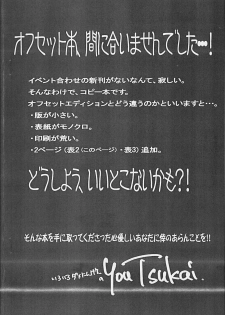 オフセット本、間に合いませんでした…！
イベント合わせの新刊がないなんて、寂しい。
そんなわけで、コピー本です。
オフセットエディションとどう違うのかといいますと…。
・版が小さい。
・表紙がモノクロ。
・印刷が荒い。
・2ページ（表2（このページ）・表3）追加。
どうしよう、いいとこないかも？！
そんな本を手に取ってくださった心優しいあなたに幸のあらんことを!!
You Tsukai.